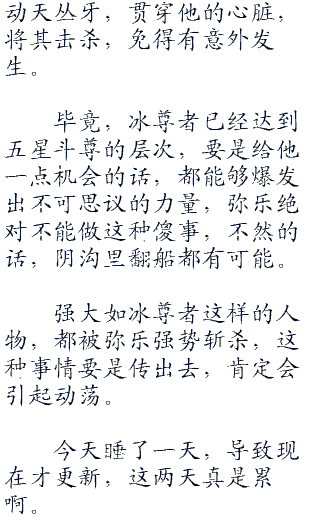 动天丛牙，贯穿他的心脏，
将其击杀，免得有意外发
生。
毕竟，冰尊者已经达到
五星斗尊的层次，要是给他
一点机会的话，都能够爆发
出不可思议的力量，弥乐绝
对不能做这种傻事，不然的
话，阴沟里翻船都有可能。
强大如冰尊者这样的人
物，都被弥乐强势斩杀，这
种事情要是传出去，肯定会
引起动荡。
今天睡了一天，导致现
在才更新，这两天真是累
啊。